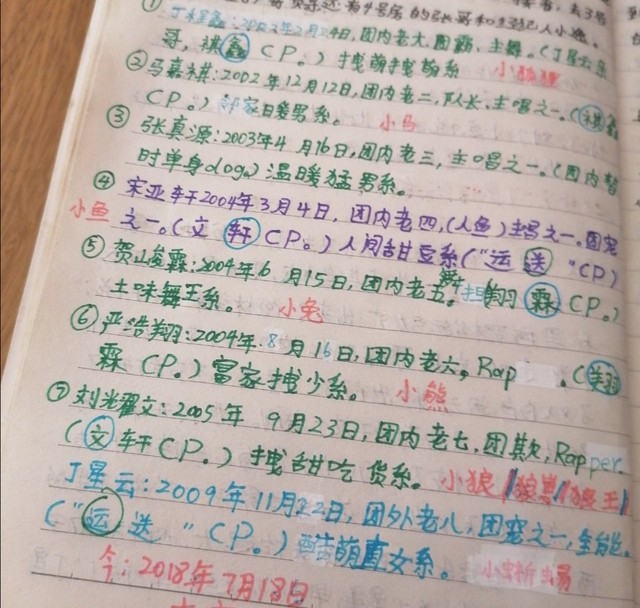 ① 丁程鑫:2002年2月24日,团内老大,团霸、主舞。(丁星云亲
哥,祺鑫CP。)拽萌拽萌系 小狐狸
② 马嘉祺:2002年12月12日,团内老二,队长、主唱之一。(祺鑫
CP。)邻家日暖男系。 小马
③ 张真源:2003年4月16日,团内老三,主唱之一。(团内暂
时单身dog。)温暖猛男系。
④ 宋亚轩2004年3月4日,团内老四,(人鱼)主唱之一。团宠
小鱼 之一。(文轩CP。)人间甜豆系("运送"CP)
⑤ 贺峻霖:2004年6月15日,团内老五。(翔霖CP。)
土味舞王系。 小兔
⑥ 严浩翔:2004年8月16日,团内老六,Rap 。(翔
霖CP。)富家拽少系。 小熊
⑦ 刘耀文:2005年9月23日,团内老七,团欺,Rapper.
(文轩CP。)拽甜吃货系。 小狼/狼崽/狼王/
丁星云:2009年11月22日,团外老八,团宠之一,全能。
("运送"CP。)酷萌直女系。
今:2018年7月18日